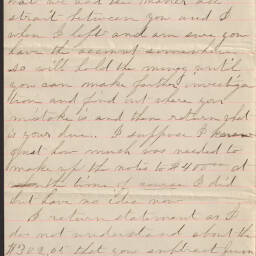 that we had the matter all
strait between you and I
when I left and am sure you
have the account somewhere
so will hold the money until
you can make farther investiga
tion and find out where you
mistake is and then return what
is your due. I suppose I knew
just how much was needed to
make up the notes to $400.00 at
the time of course I did
but have no idea now
I return statement as I
do not understand about the
$302.05 that you subtract from